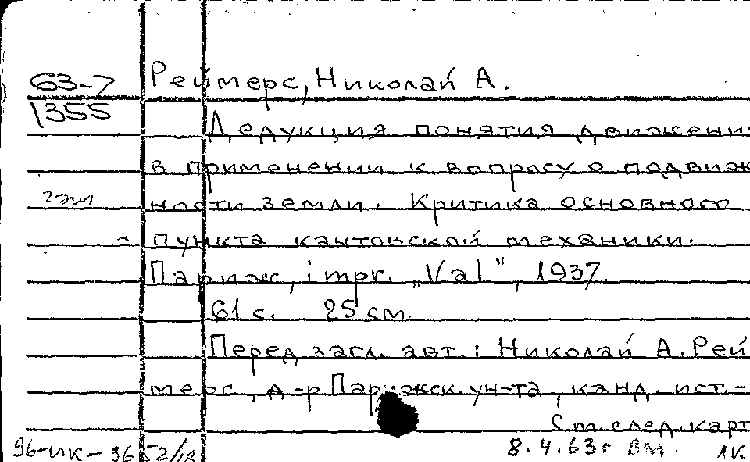 63-7 Реймерс, Николай А.
1355
Дедукция понятия движени
в применении к вопросу о подвиж
ности земли. Критика основного
пункта кантовской механики.
Париж, impr. „Val", 1937
61 с. 25 см.
Перед загл. авт.: Николай А. Рей
мерс, д-р Парижск. ун-та, канд. ист.-
См. след. карт
8.4.63г